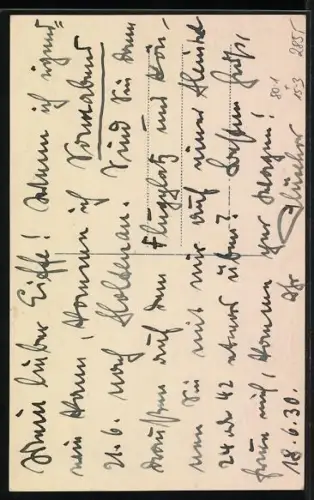 Mein lieber Eiffe! Wenn ich irgend=
wie kann, komme ich Sonnabend
21.6. nach Holtenau. Sind Sie dann
draußen auf dem Flugplatz und kön-
nen Sie mit mir auf einer Heinkel
24 od. 42 etwas üben? Besten Gruß,
freue mich, kommen zu
Ihr
18.6.30.
801
153 2855